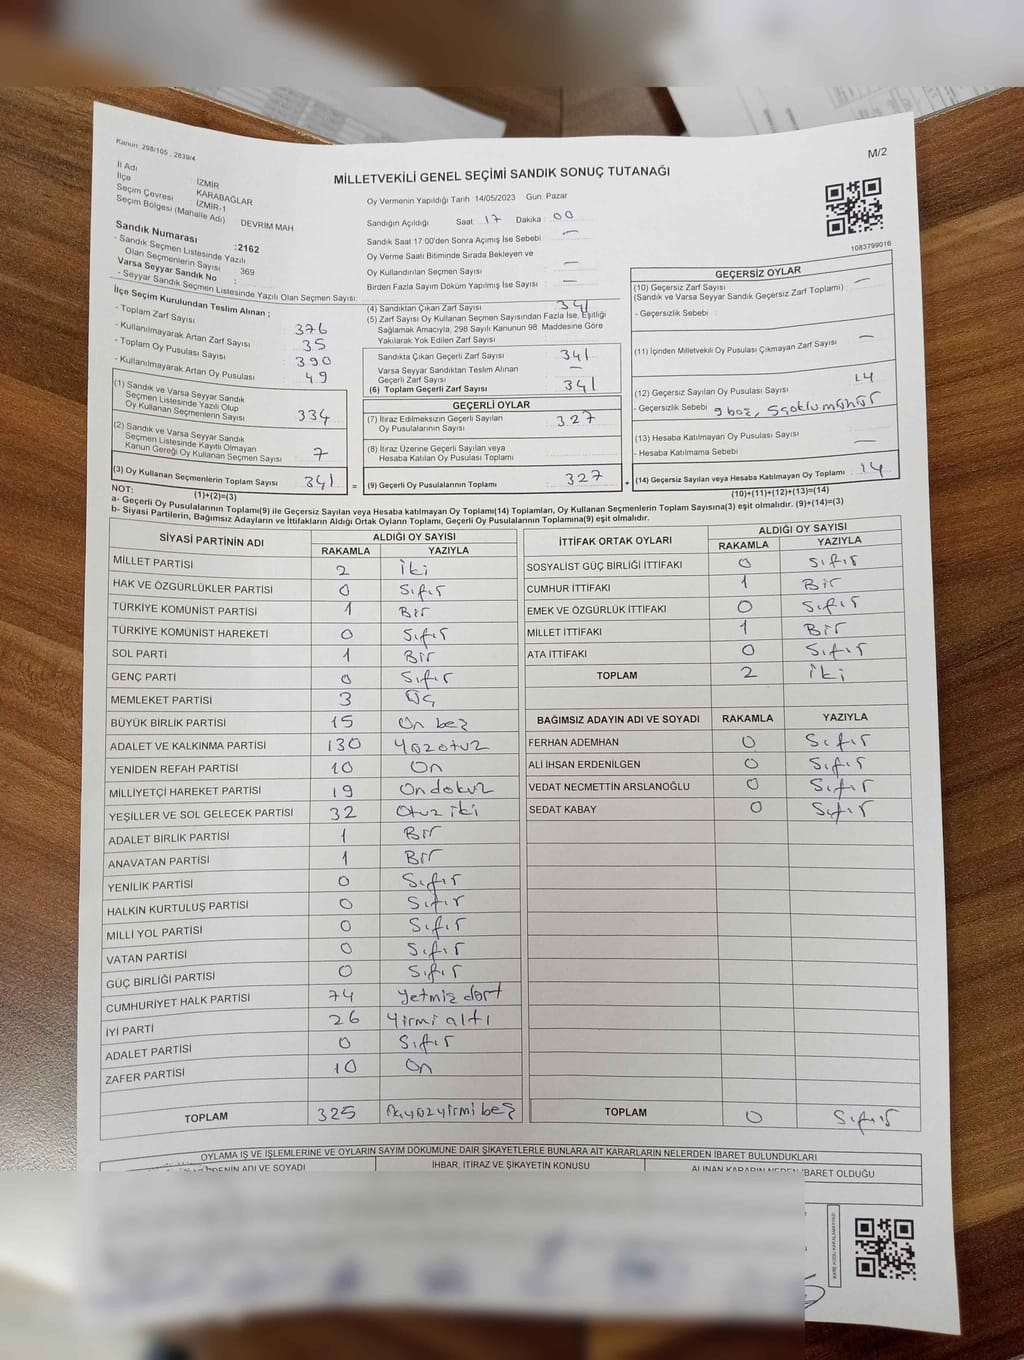 Kanun: 298/105 , 2839/4
M/2
MİLLETVEKİLİ GENEL SEÇİMİ SANDIK SONUÇ TUTANAĞI
İl Adı : İZMİR
İlçe KARABAĞLAR
Seçim Çevresi : İZMİR-1
Seçim Bölgesi (Mahalle Adı) DEVRİM MAH
Sandık Numarası :2162
- Sandık Seçmen Listesinde Yazılı
Olan Seçmenlerin Sayısı : 369
Varsa Seyyar Sandık No :
- Seyyar Sandık Seçmen Listesinde Yazılı Olan Seçmen Sayısı:
Oy Vermenin Yapıldığı Tarih 14/05/2023 Gün: Pazar
Sandığın Açıldığı Saat 17 Dakika : 00
Sandık Saat 17:00'den Sonra Açımış İse Sebebi —
Oy Verme Saati Bitiminde Sırada Bekleyen ve
Oy Kullandırılan Seçmen Sayısı —
Birden Fazla Sayım Döküm Yapılmış İse Sayısı —
1083799016
İlçe Seçim Kurulundan Teslim Alınan ;
- Toplam Zarf Sayısı 376
- Kullanılmayarak Artan Zarf Sayısı 35
- Toplam Oy Pusulası Sayısı 390
- Kullanılmayarak Artan Oy Pusulası 49
(1) Sandık ve Varsa Seyyar Sandık
Seçmen Listesinde Yazılı Olup
Oy Kullanan Seçmenlerin Sayısı 334
(2) Sandık ve Varsa Seyyar Sandık
Seçmen Listesinde Kayıtlı Olmayan
Kanun Gereği Oy Kullanan Seçmen Sayısı 7
(3) Oy Kullanan Seçmenlerin Toplam Sayısı 341 =
(1)+(2)=(3)
(4) Sandıktan Çıkan Zarf Sayısı 341
(5) Zarf Sayısı Oy Kullanan Seçmen Sayısından Fazla İse, Eşitliği
Sağlamak Amacıyla; 298 Sayılı Kanunun 98. Maddesine Göre
Yakılarak Yok Edilen Zarf Sayısı
Sandıkta Çıkan Geçerli Zarf Sayısı 341
Varsa Seyyar Sandıktan Teslim Alınan
Geçerli Zarf Sayısı —
(6) Toplam Geçerli Zarf Sayısı 341
GEÇERLİ OYLAR
(7) İtiraz Edilmeksizin Geçerli Sayılan
Oy Pusulalarının Sayısı 327
(8) İtiraz Üzerine Geçerli Sayılan veya
Hesaba Katılan Oy Pusulası Toplamı
(9) Geçerli Oy Pusulalarının Toplamı 327 +
GEÇERSİZ OYLAR
(10) Geçersiz Zarf Sayısı —
(Sandık ve Varsa Seyyar Sandık Geçersiz Zarf Toplamı)
- Geçersizlik Sebebi :
(11) İçinden Milletvekili Oy Pusulası Çıkmayan Zarf Sayısı —
(12) Geçersiz Sayılan Oy Pusulası Sayısı 14
- Geçersizlik Sebebi 9 boş, 5 çoklu mühür
(13) Hesaba Katılmayan Oy Pusulası Sayısı
- Hesaba Katılmama Sebebi —
(14) Geçersiz Sayılan veya Hesaba Katılmayan Oy Toplamı 14
(10)+(11)+(12)+(13)=(14)
NOT:
a- Geçerli Oy Pusulalarının Toplamı(9) ile Geçersiz Sayılan veya Hesaba katılmayan Oy Toplamı(14) Toplamları, Oy Kullanan Seçmenlerin Toplam Sayısına(3) eşit olmalıdır. (9)+(14)=(3)
b- Siyasi Partilerin, Bağımsız Adayların ve İttifakların Aldığı Ortak Oyların Toplamı, Geçerli Oy Pusulalarının Toplamına(9) eşit olmalıdır.
SİYASİ PARTİNİN ADI ALDIĞI OY SAYISI
RAKAMLA YAZIYLA
MİLLET PARTİSİ 2 iki
HAK VE ÖZGÜRLÜKLER PARTİSİ 0 Sıfır
TÜRKİYE KOMÜNİST PARTİSİ 1 Bir
TÜRKİYE KOMÜNİST HAREKETİ 0 Sıfır
SOL PARTİ 1 Bir
GENÇ PARTİ 0 Sıfır
MEMLEKET PARTİSİ 3 Üç
BÜYÜK BİRLİK PARTİSİ 15 On beş
ADALET VE KALKINMA PARTİSİ 130 Yüzotuz
YENİDEN REFAH PARTİSİ 10 On
MİLLİYETÇİ HAREKET PARTİSİ 19 Ondokuz
YEŞİLLER VE SOL GELECEK PARTİSİ 32 Otuz iki
ADALET BİRLİK PARTİSİ 1 Bir
ANAVATAN PARTİSİ 1 Bir
YENİLİK PARTİSİ 0 Sıfır
HALKIN KURTULUŞ PARTİSİ 0 Sıfır
MİLLİ YOL PARTİSİ 0 Sıfır
VATAN PARTİSİ 0 Sıfır
GÜÇ BİRLİĞİ PARTİSİ 0 Sıfır
CUMHURİYET HALK PARTİSİ 74 Yetmiş dört
İYİ PARTİ 26 Yirmi altı
ADALET PARTİSİ 0 Sıfır
ZAFER PARTİSİ 10 On
TOPLAM 325 üçyüzyirmi beş
İTTİFAK ORTAK OYLARI ALDIĞI OY SAYISI
RAKAMLA YAZIYLA
SOSYALİST GÜÇ BİRLİĞİ İTTİFAKI 0 Sıfır
CUMHUR İTTİFAKI 1 Bir
EMEK VE ÖZGÜRLÜK İTTİFAKI 0 Sıfır
MİLLET İTTİFAKI 1 Bir
ATA İTTİFAKI 0 Sıfır
TOPLAM 2 iki
BAĞIMSIZ ADAYIN ADI VE SOYADI RAKAMLA YAZIYLA
FERHAN ADEMHAN 0 Sıfır
ALİ İHSAN ERDENİLGEN 0 Sıfır
VEDAT NECMETTİN ARSLANOĞLU 0 Sıfır
SEDAT KABAY 0 Sıfır
TOPLAM 0 Sıfır
OYLAMA İŞ VE İŞLEMLERİNE VE OYLARIN SAYIM DÖKÜMÜNE DAİR ŞİKAYETLERLE BUNLARA AİT KARARLARIN NELERDEN İBARET BULUNDUKLARI
ADI VE SOYADI İHBAR, İTİRAZ VE ŞİKAYETİN KONUSU ALINAN KARARIN NEDEN İBARET OLDUĞU